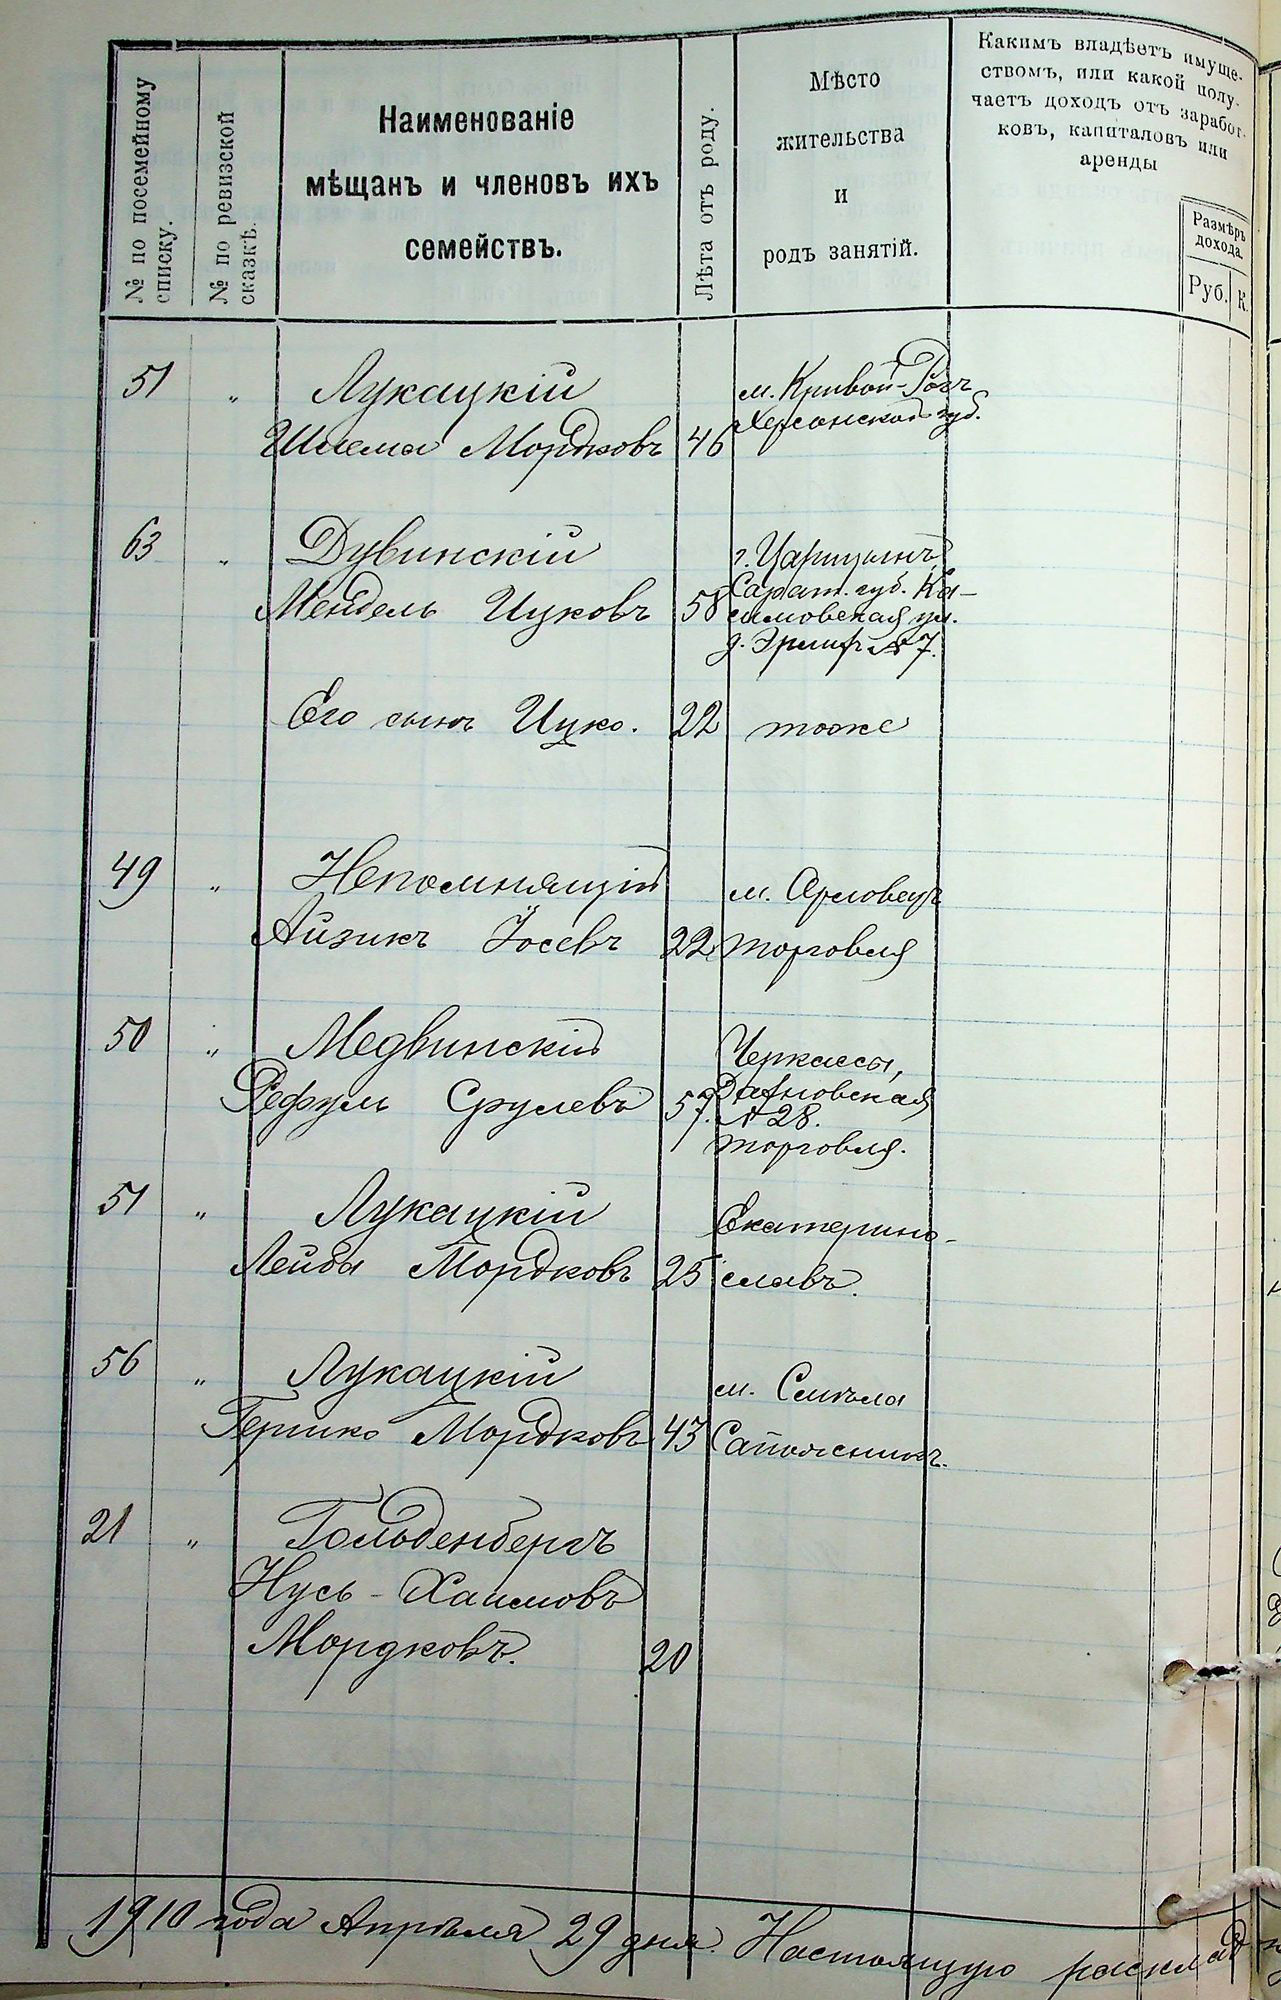 № по посемейному
списку.
№ по ревизской
сказкѣ.
Наименованіе
мѣщанъ и членовъ ихъ
семействъ.
Лѣта отъ роду.
Мѣсто
жительства
и
родъ занятій.
Какимъ владѣетъ имуще-
ствомъ, или какой полу-
чаетъ доходъ отъ заработ-
ковъ, капиталовъ или
аренды
Размѣръ
дохода.
Руб. К.
51 " Лукацкій м. Кривой-Рогъ
Херсонской губ.
Шлема Мордковъ 46
63 " Дувинскій г. Царицынъ
Сарат. губ. Ка-
Мендель Ицковъ 58 симовская ул.
д. № 7.
Его сынъ Ицко. 22 тоже
49 " Непомнящій м. Орловецъ
Айзикъ Іосевъ 22 торговля
50 " Медвинскій Черкассы,
Рефулъ Срулевъ 57.
№ 28.
торговля.
51 " Лукацкій Екатерино-
Лейба Мордковъ 25 славъ.
56 " Лукацкій м. Смѣла
Гершко Мордковъ 43 Сапожникъ.
21 " Гольденбергъ
Нусь-Хаимовъ
Мордковъ. 20
1910 года Апрѣля 29 дня. Настоящую расклад